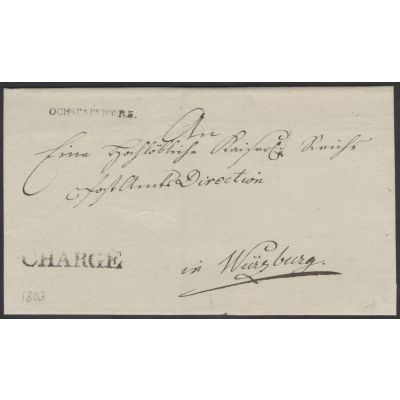 OCHSENFURT.R.3.
An
Eine Hochlöbliche Kaiserl. Reichs
Post Amts Direction
CHARGE.
in Würzburg.
1803